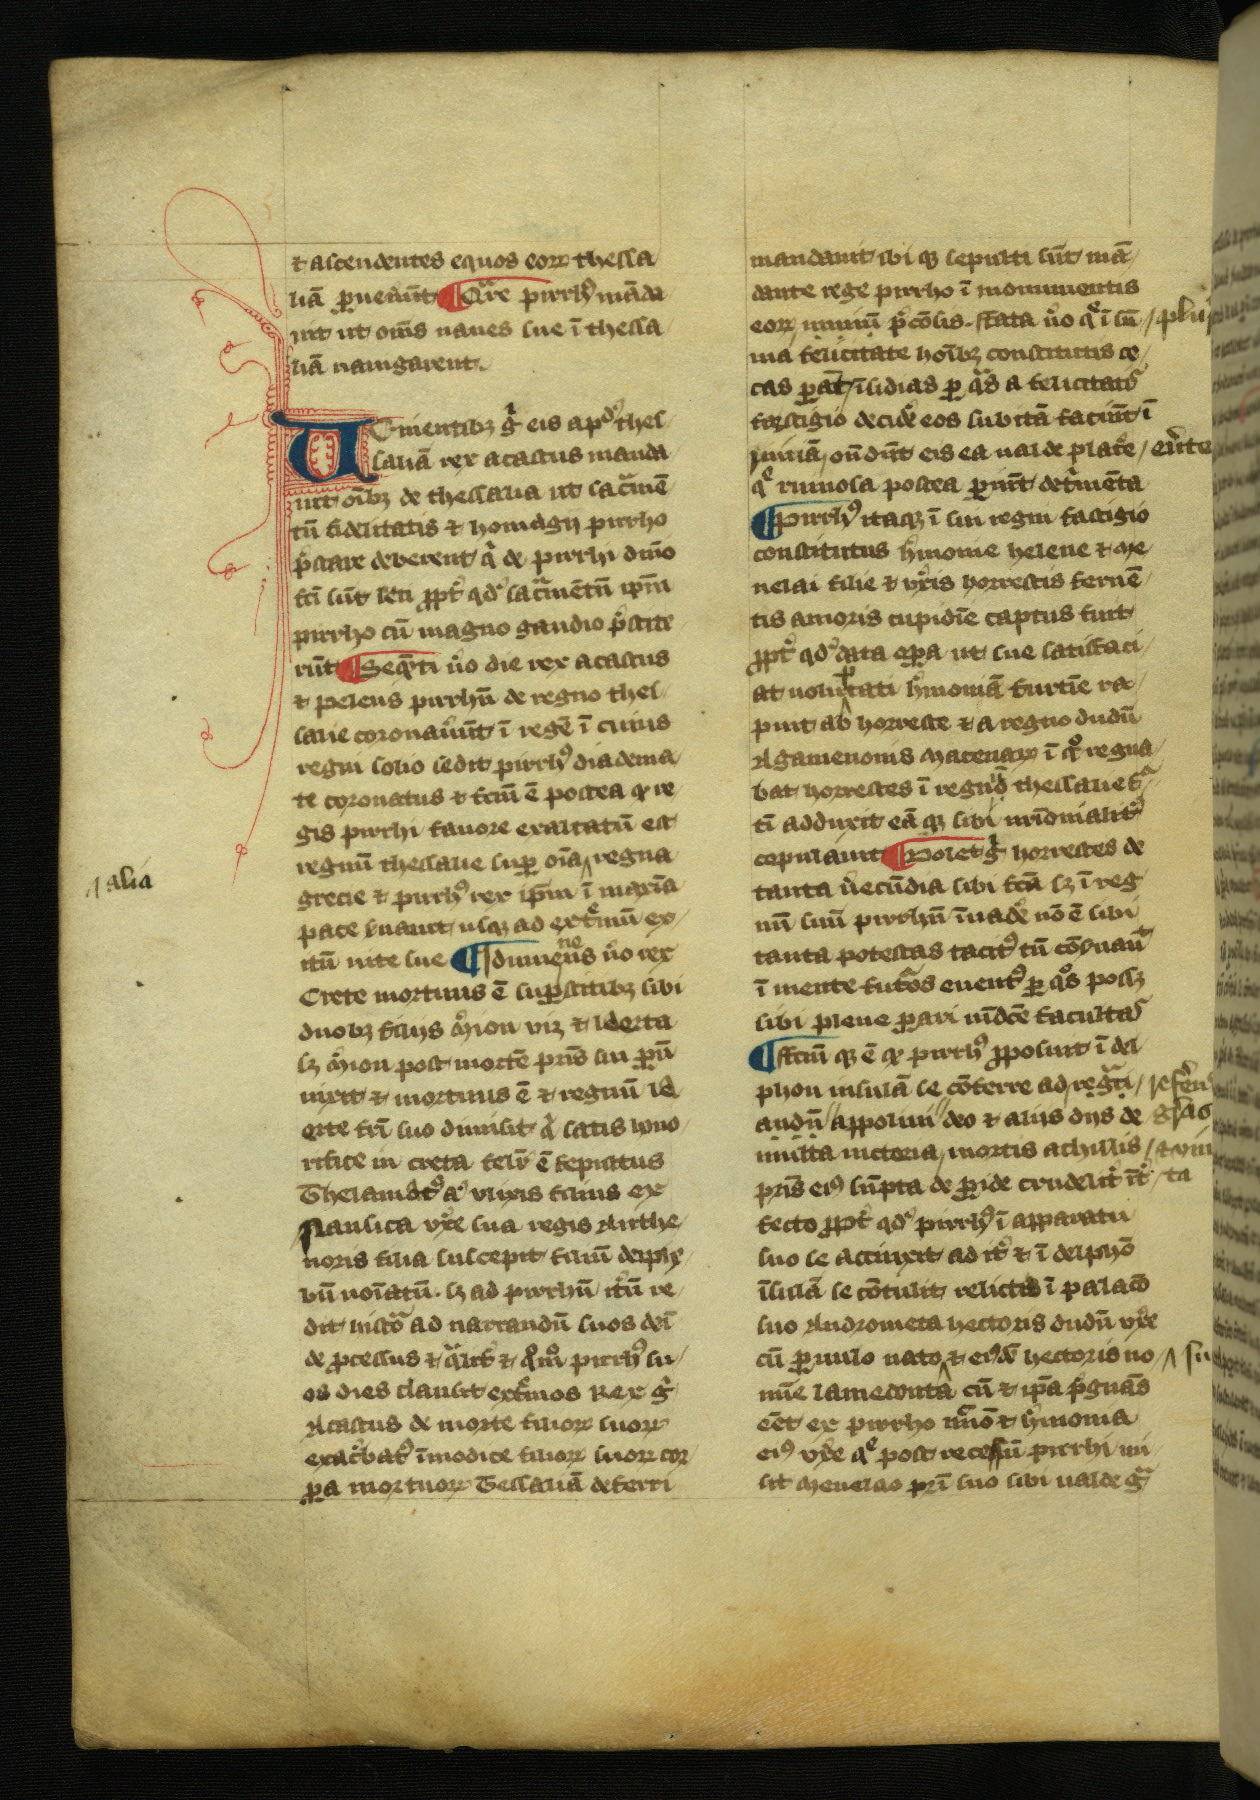 et ascendentes equos eoꝝ thessa
liā ꝑuenūt Quare pirrhꝰ māda
uit ut om̄s naues sue ī thessa
liā nauigarent.
Uenientibꝫ gͥ eis apd' thes
saliā rex acastus manda
uit oībꝫ de thessalia ut sacͣmē
tū fidelitatis et homagij pirrho
p̄stare deberent qͥ de pirrhi dn̄io
fc̄i sūt leti ꝓpt̉ qd' sacͣmētū ip̄m
pirrho cū magno gaudio p̄stite
rūt Seqn̄ti ůo die rex acastus
et peleus pirrhū de regno thes
salie coronauerūt ī regē ī cuius
regni solio sedit pirrhꝰ diadema
te coronatus et fc̄m ē postea qͥ re
gis pirrhi fauore exaltatū est
regnū thessalie suꝑ oīa regna
alia
grecie et pirrhꝰ rex ip̄m ī maxīa
pace tenuit usqꝫ ad extͤmū ex
itū uite sue Idumeneus ůo rex
Crete mortuus ē suꝑstitibꝫ sibi
duobꝫ filijs Merion uiꝫ et ldeꝛta
lꝫ Merion post mortē pr̄is sui ꝑū
uixit et mortuus ē et regnū ld
eꝛte fr̄i suo dimisit qͥ satis hono
rifice in creta fel͛ ē sepultus
Thelamōtꝰ aͦ ulixis filius ex
Nausica uxͤ sua regis Anthe
noris filia suscepit filiū deiphe
bū noīatū. lꝫ ad pirrhū itͤū re
dit histoͬ ad narrandū suos dei
de ꝓcessus et qͣlit̉ et qͦmͦ pirrhꝰ su
os dies clausit extͤmos Rex gͥ
Acastus de morte filioꝝ suoꝝ
exacͤbatꝰ īmodice filioꝝ suoꝝ cor
ꝑa mortuoꝝ Tessaliā deferri
mandauit ibi qꝫ sepulti sūt mā
dante rege pirrho ī monumentis
eoꝝ nimiū p̄cōsis. Fata ůo qͤ ī sū
ma felicitate hoībꝫ constitutis ce
cas ꝑāt īsidias ꝑ qͣs a felicitatͥs
fastigio decidͤe eos subitā faciūt ī
ruinā, on̄dūt eis ea ualde placͤe
qͤ ruinosa postea ꝑiūt detͥmēta
Pirrhꝰ itaqꝫ ī sui regni fastigio
constitutus hͤmonie helene et me
nelai filie et uxͦis horrestis feruē
tis amoris cupidīe captus fuit
ꝓpt̉ qd' data oꝑa ut sue satisfaci
at uoluptati hͤmoniā furtīe ra
puit ab horreste et a regno dudū
Agamenonis Macenaꝝ ī qͦ regna
bat horrestes ī regnū thessalie
adduxit eā qꝫ sibi mr̄imonialitͤ
copulauit Dolet gͥ horrestes de
tanta ůecūdia sibi fc̄a lꝫ ī reg
nū suū pirrhū īuadͤe nō ē sibi
tanta potestas tacitꝰ tū cōsuauit
ī mente futͦos euentꝰ ꝑ qͦs possꝫ
sibi plene ꝑari uīdicte facultas
Factū qꝫ ē qͥ pirrhꝰ ꝓposuit ī del
phon insulā se cōferre ad
appolini deo et alijs dijs de
multa uictoria, mortis achillis
pr̄is eiꝰ sūpta de ꝑide crudelitͤ īt̉
fecto ꝓpt̉ qd' pirrhꝰ ī apparatu
suo se accinxit ad it̉ et ī delphō
īsulā se cōtulit relictis ī palacio
suo Andrometa hectoris dudū uxͤe
cū ꝑuulo nato et eiꝰdē hectoris no
mīe lamedonta cū et ip̄a p̄gnās
eēt ex pirrho et hͤmonia
eiꝰ uxͤe qͤ post recessū pirrhi mi
sit Menelao pr̄i suo sibi ualde gͣ